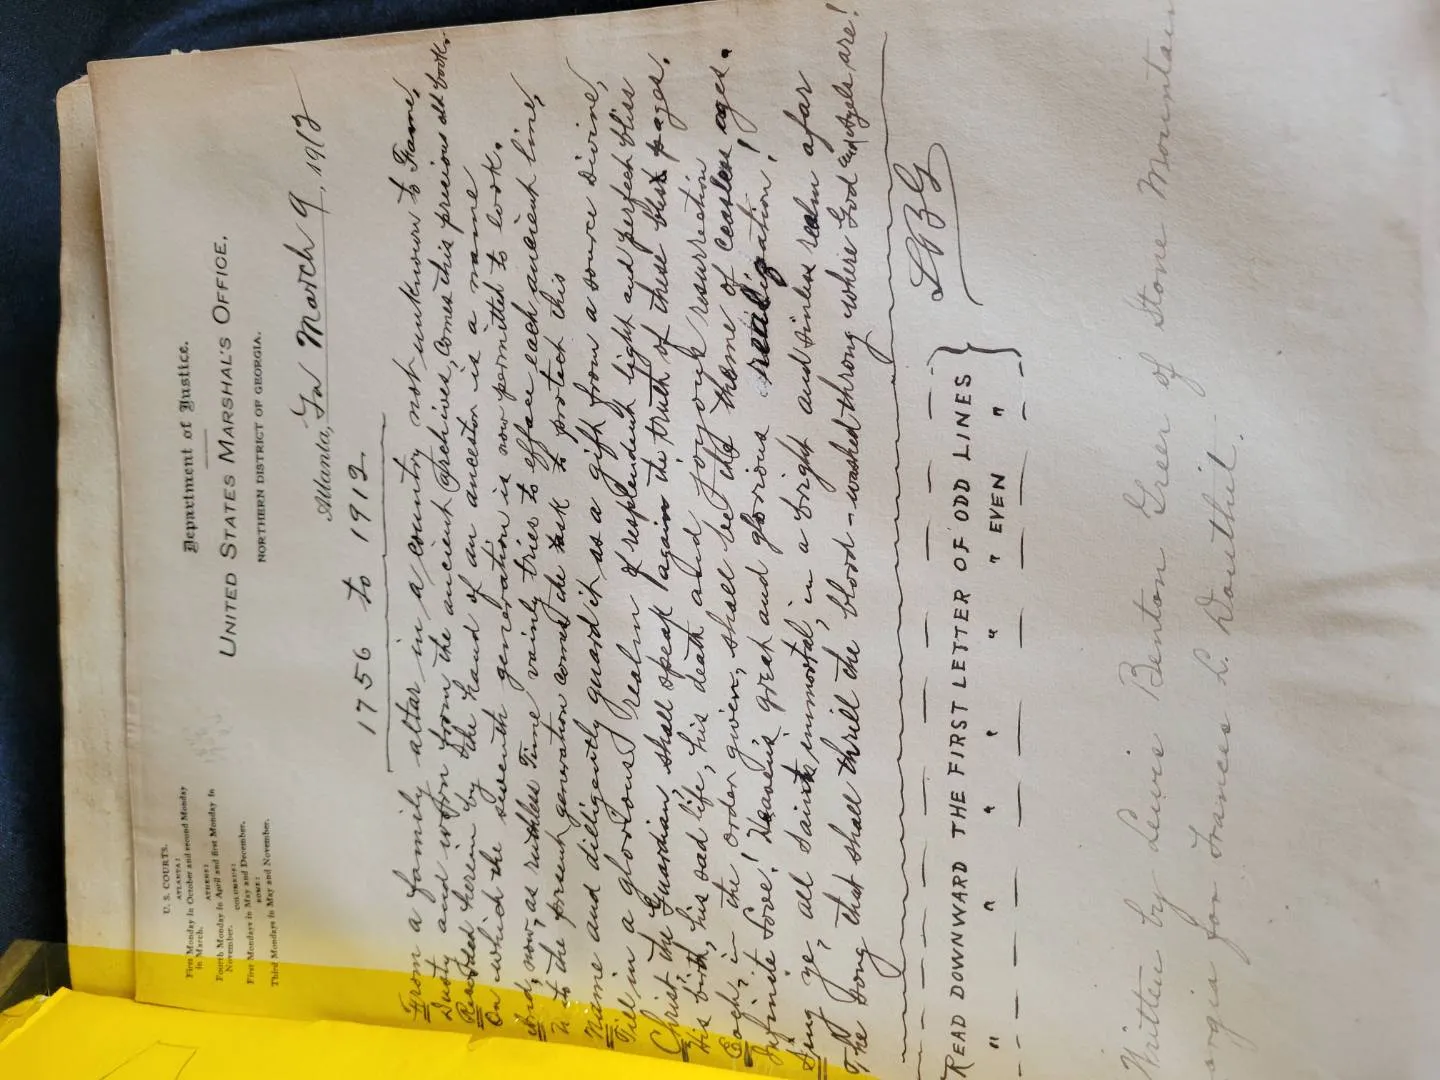 Department of Justice.
UNITED STATES MARSHAL'S OFFICE,
NORTHERN DISTRICT OF GEORGIA.
U. S. COURTS.
ATLANTA:
First Monday in October and second Monday
in March.
ATHENS:
Fourth Monday in April and first Monday in
November.
COLUMBUS:
First Mondays in May and December.
ROME:
Third Mondays in May and November.
Atlanta, Ga March 9, 1912
1756 to 1912
From a family altar in a country not unknown to Fame,
Dusty and worn from the ancient archives, comes this precious old book.
Recorded herein by the hand of an ancestor is a name
On which the seventh generation is now permitted to look.
And, now, as ruthless Time vainly tries to efface each ancient line,
Unto the present generation comes the task to protect this
Name and dilligently guard it as a gift from a source Divine,
Till in a glorious realm of resplendent light and perfect bliss
Christ the Guardian shall speak again the truth of these best pages.
His birth, his sad life, his death and joyous resurrection
Each, in the order given, shall be the theme of ceasless ages.
Infinite Love! Heaven's great and glorious realization!
Sing ye! all saints, immortal, in a bright and sinless realm afar
The song that shall thrill the blood-washed throng where God and Angels are!
READ DOWNWARD THE FIRST LETTER OF ODD LINES }
" " " " " " EVEN " }
LBG
Written by Lewis Benton Greer of Stone Mountain
Georgia for Frances L. Douthit.